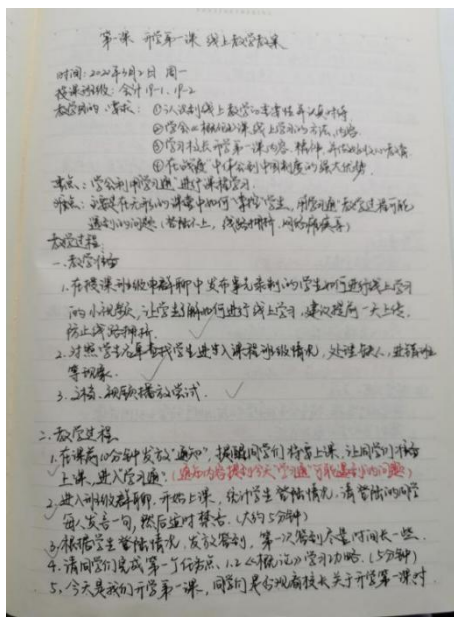 第一课 开学第一课 线上教学教案
时间:2020年3月2日 周一
授课班级:会计19-1、19-2
教学目的、要求: ①认识到线上教学的重要性并认真对待.
②学会《概论》课线上学习的方法、内容.
③学习校长开学第一课内容、精神,并
④在"战疫"中体会到中国制度的强大优势.
重点:学会利用"学习通"进行课程学习.
难点:主要是在无形的课堂中如何"掌控"学生,用学习通教学过程可能
遇到的问题(登陆不上,线路拥挤,网络瘫痪等)
教学过程:
一、教学准备
1.在授课班级电群聊中发布事先录制的学生如何进行线上学习
的小视频,让学生了解如何进行线上学习,建议提前一天上传,
防止线路拥挤.
2.对照学生名单查找学生进入课程班级情况,处理缺人,进错班
等现象.
3.文档、视频播放尝试.
二、教学过程
1.在课前10分钟发放"通知",提醒同学们将要上课,让同学们准备
上课,进入学习通.(通知内容提到今天"学习通"可能遇到的问题)
2.进入班级群聊,开始上课,统计学生登陆情况,请登陆的同学
每人发言一句,然后适时禁言.(大约5分钟)
3.根据学生登陆情况,发放签到,第一次签到尽量时间长一些.
4.请同学们完成第一个任务点、1.2《概论》学习攻略.(5分钟)
5.今天是我们开学第一课,同学们是否观看校长关于开学第一课对